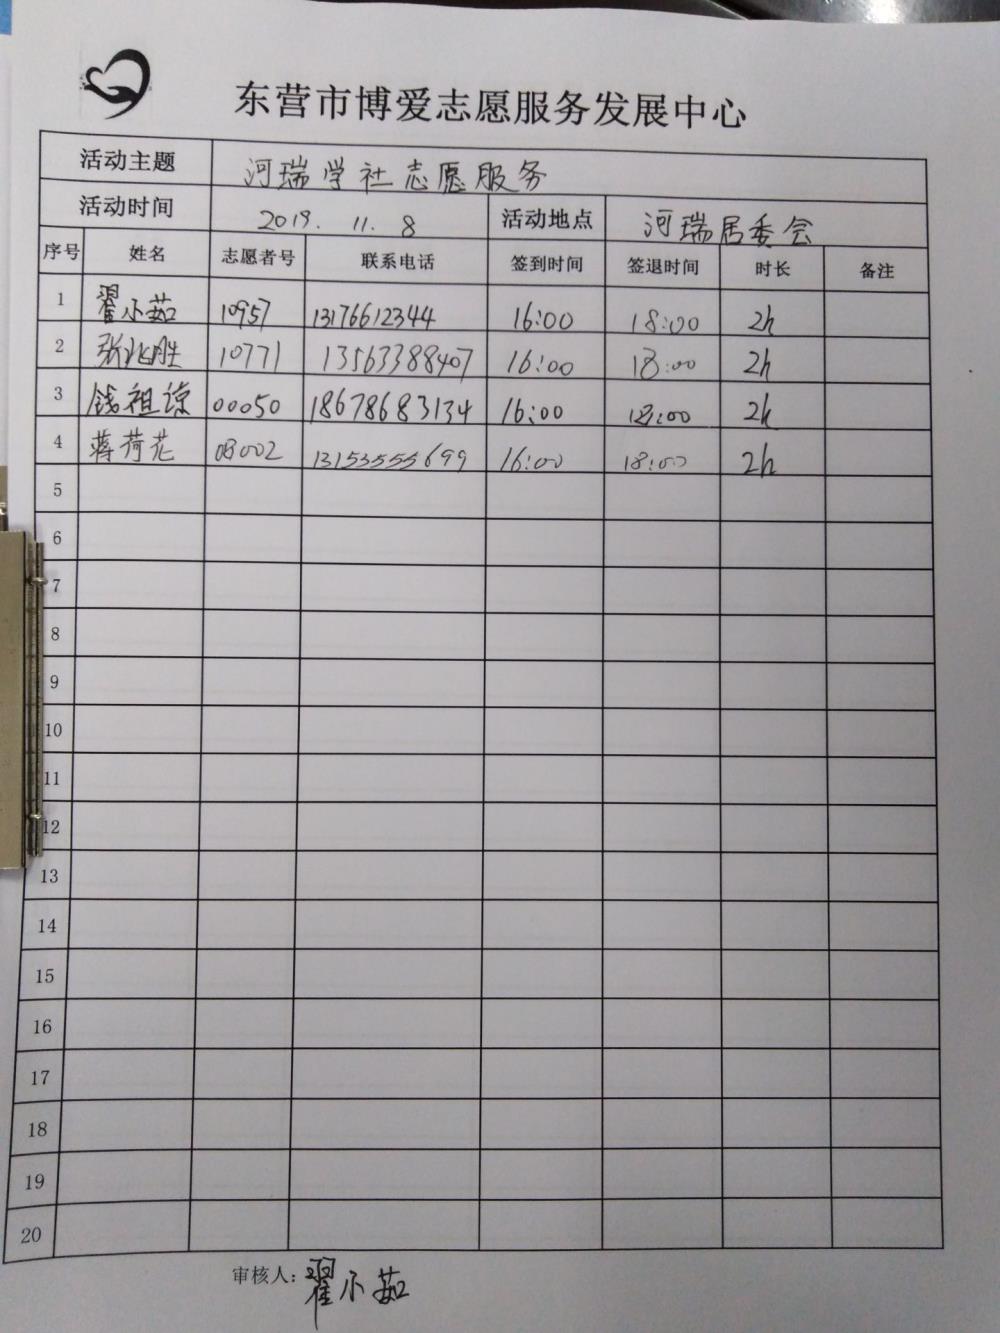 东营市博爱志愿服务发展中心
活动主题 河瑞学社志愿服务
活动时间 2019. 11. 8 活动地点 河瑞居委会
序号 姓名 志愿者号 联系电话 签到时间 签退时间 时长 备注
1 翟小茹 10957 13176612344 16:00 18:00 2h
2 张兆胜 10771 13563388407 16:00 18:00 2h
3 钱祖谅 00050 18678683134 16:00 18:00 2h
4 蒋荷花 08002 13153555699 16:00 18:00 2h
5
6
7
8
9
10
11
12
13
14
15
16
17
18
19
20
审核人：翟小茹